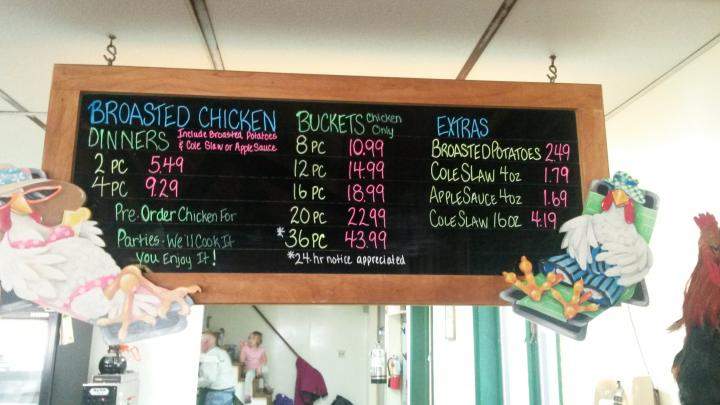 BROASTED CHICKEN
DINNERS Include Broasted Potatoes
& Cole Slaw or Apple Sauce
2 PC 5.49
4 PC 9.29
Pre-Order Chicken For
Parties-We'll Cook It
you Enjoy It!
BUCKETS Chicken
Only
8 PC 10.99
12 PC 14.99
16 PC 18.99
20 PC 22.99
*36 PC 43.99
*24-hr notice appreciated
EXTRAS
BROASTED POTATOES 2.49
COLE SLAW 4oz 1.79
APPLE SAUCE 4oz 1.69
COLE SLAW 16oz 4.19